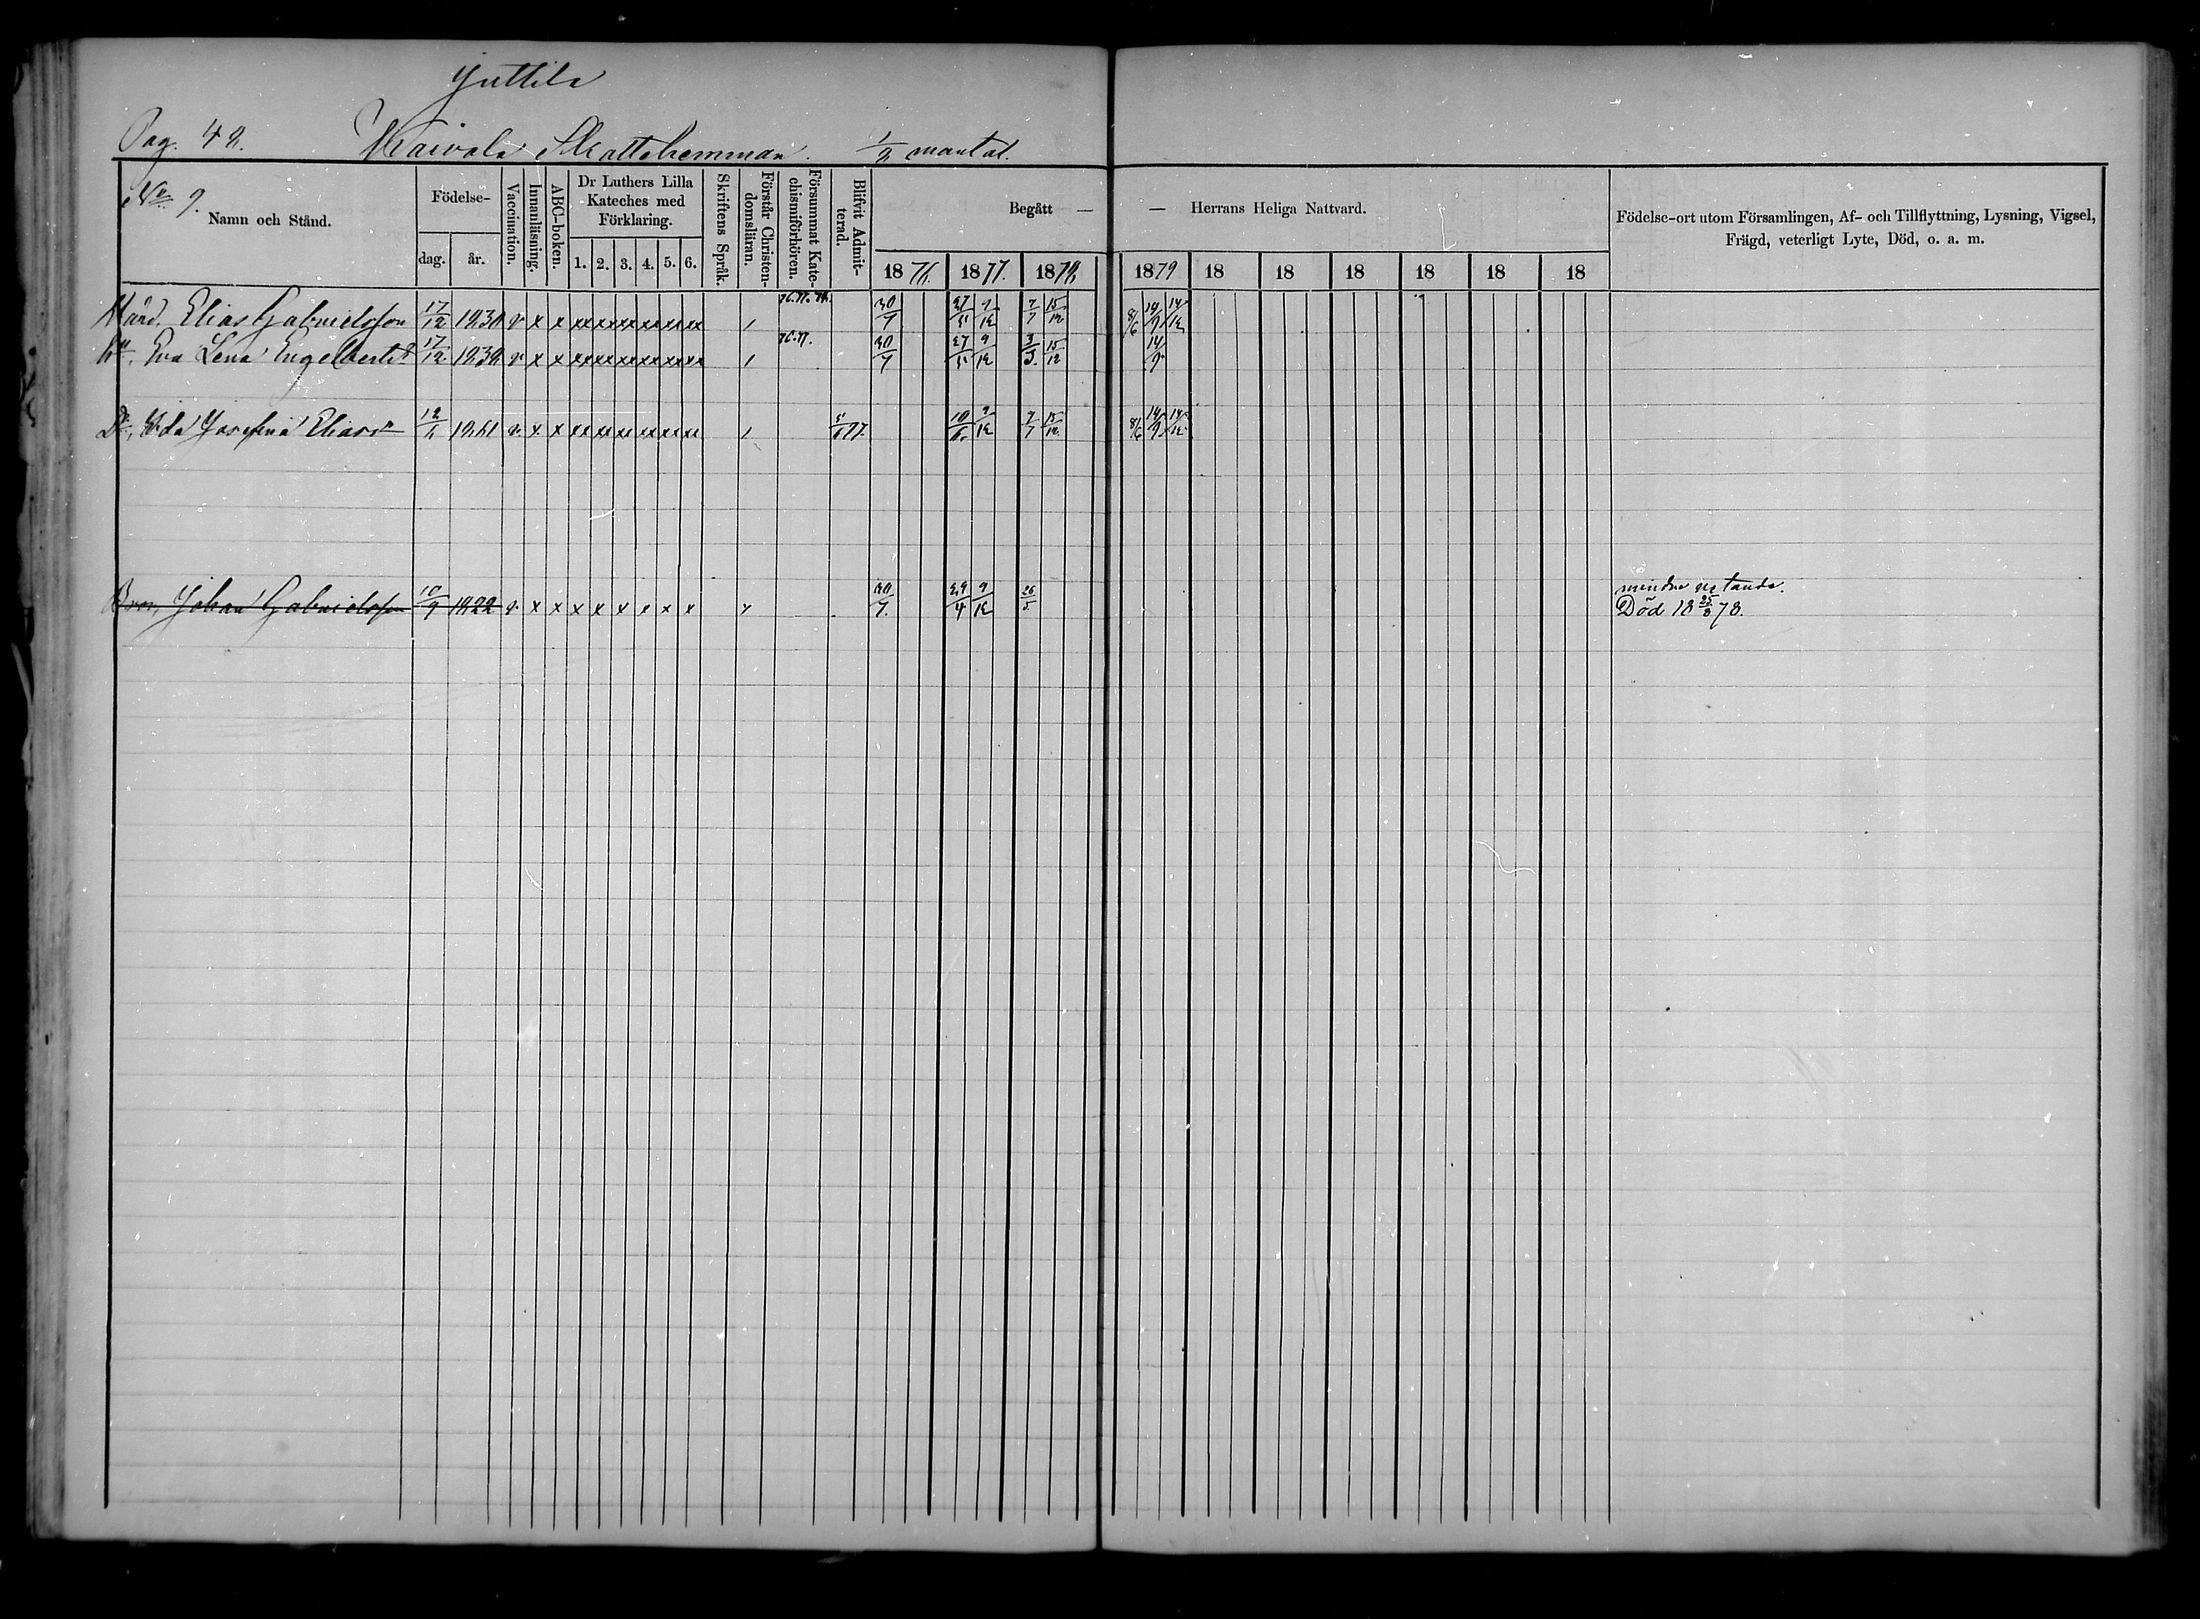 Juttila
Pag. 42. Kaivola Skattehemman. 1/2 mantal.
No 9.
Namn och Stånd.
Födelse-
dag. år.
Vaccination.
Innanläsning.
ABC-boken.
Dr Luthers Lilla
Kateches med
Förklaring.
1. 2. 3. 4. 5. 6.
Skriftens Språk.
Förstår Christen-
domsläran.
Försummat Kate-
chismiförhören.
Blifvit Admit-
terad.
Begått — — Herrans Heliga Nattvard.
1876. 1877. 1878. 1879 18 18 18 18 18 18
Födelse-ort utom Församlingen, Af- och Tillflyttning, Lysning, Vigsel,
Frägd, veterligt Lyte, Död, o. a. m.
Elias Gabrielsson 17/12 183 v x x 30/9 27/5 9/12 7/7 15/12 8/6 14/9 14/12
Eva Lena Engelbertsd 17/12 183 v x x 76. 77. 30/9 27/5 9/12 15/12 14/9
Ida Josefina Eliasd v x x 7/7 15/12 8/6 14/9 14/12
Johan Gabrielsson 10/9 1822 v x x x x x x x x 9/12 26/5
mindre vetande.
Död 18 25/8 78.